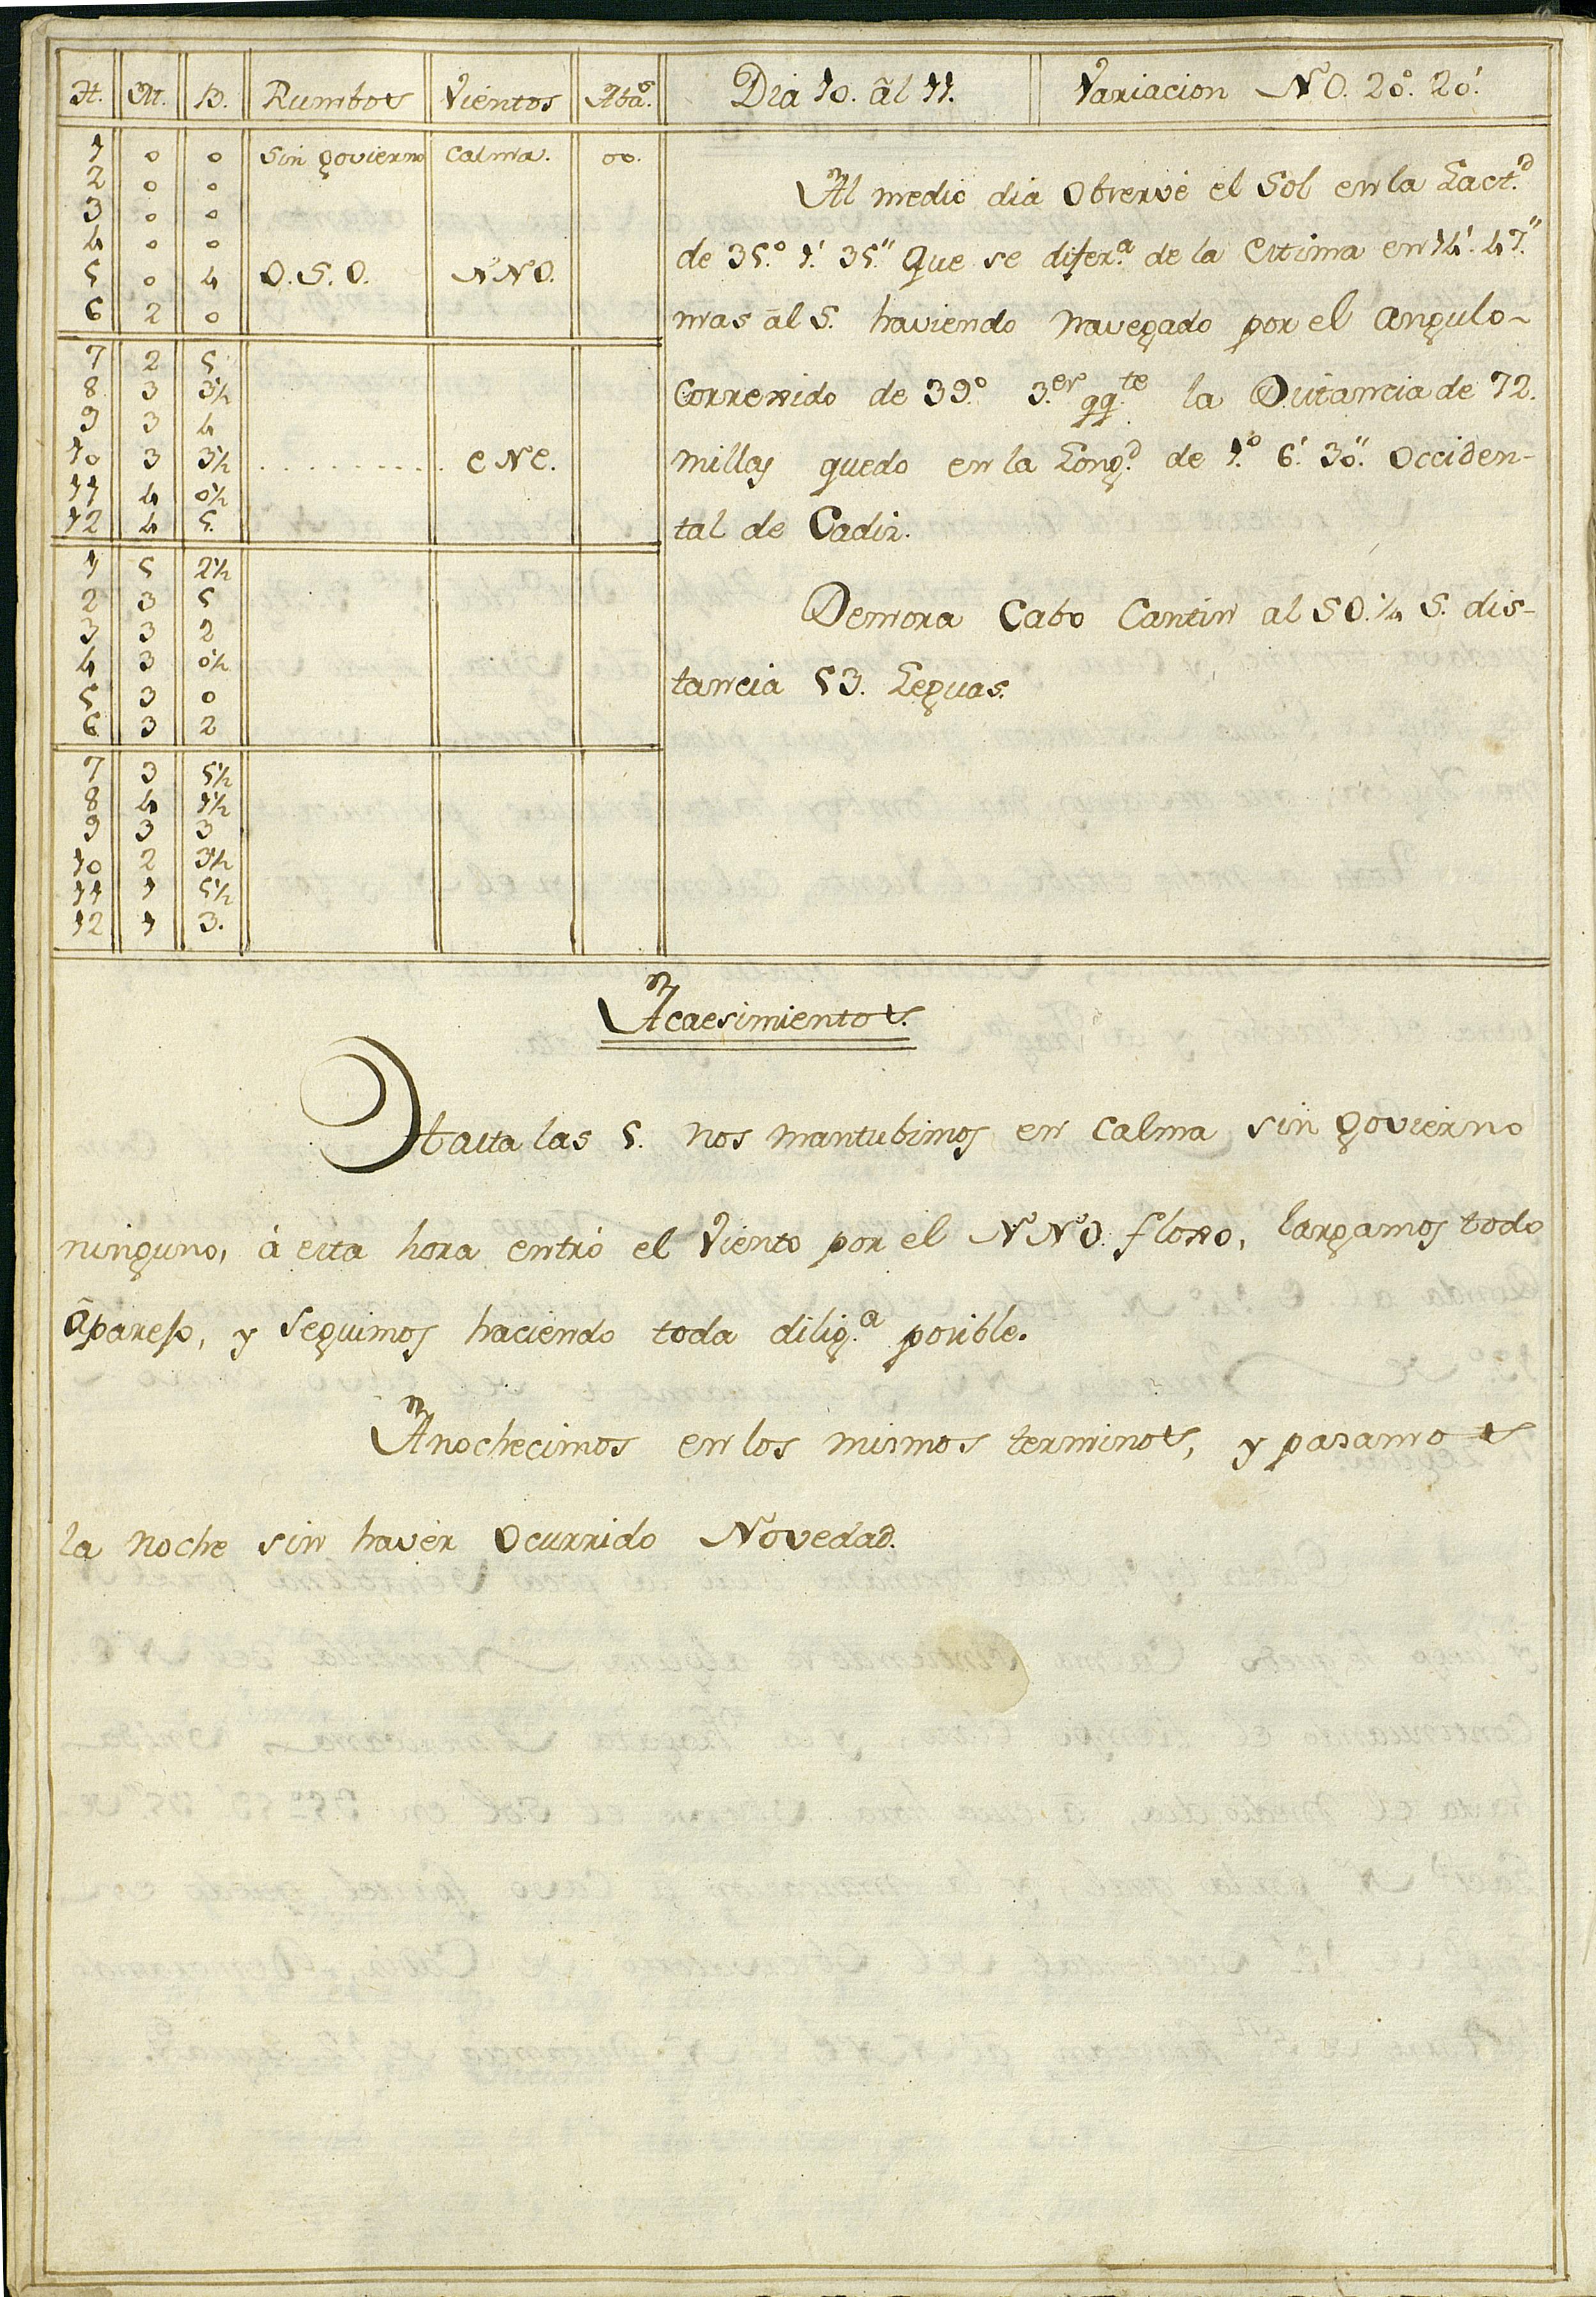 H. M. B. Rumbos Vientos Abã.s Dia 10. ãl 11. Variacion NO. 20.º 20.'
1 0 0 Sin govierno Calma. 00.
2 0 0
3 0 0
4 0 0
5 0 4 O.S.O. NNO.
6 2 0
7 2 5
8 3 3½
9 3 4
10 3 3½ .......... ENE.
11 4 0½
12 4 5.
1 5 2½
2 3 5
3 3 2
4 3 0½
5 3 0
6 3 2
7 3 5½
8 4 1½
9 3 3
10 2 3½
11 1 5½
12 1 3.
Al medio dia Observé el Sol en la Lact.d
de 35.º 1.' 35." Que se difer.a de la Estima en 14.' 47."
mas ãl S. haviendo navegado por el angulo
Correxido de 39.º 3.er qq.te la Distancia de 72.
millas quedo en la Long.d de 1.º 6.' 30." Occiden-
tal de Cadiz.
Demora Cabo Cantin al SO.¼ S. dis-
tancia 53. Leguas.
Acaesimientos.
Hasta las 5. nos mantubimos en Calma sin govierno
ninguno, á esta hora entró el Viento por el NNO. floxo, largamos todo
ãparejo, y seguimos haciendo toda dilig.a posible.
Anochecimos en los mismos terminos, y pasamos
la noche sin haver Ocurrido Novedad.